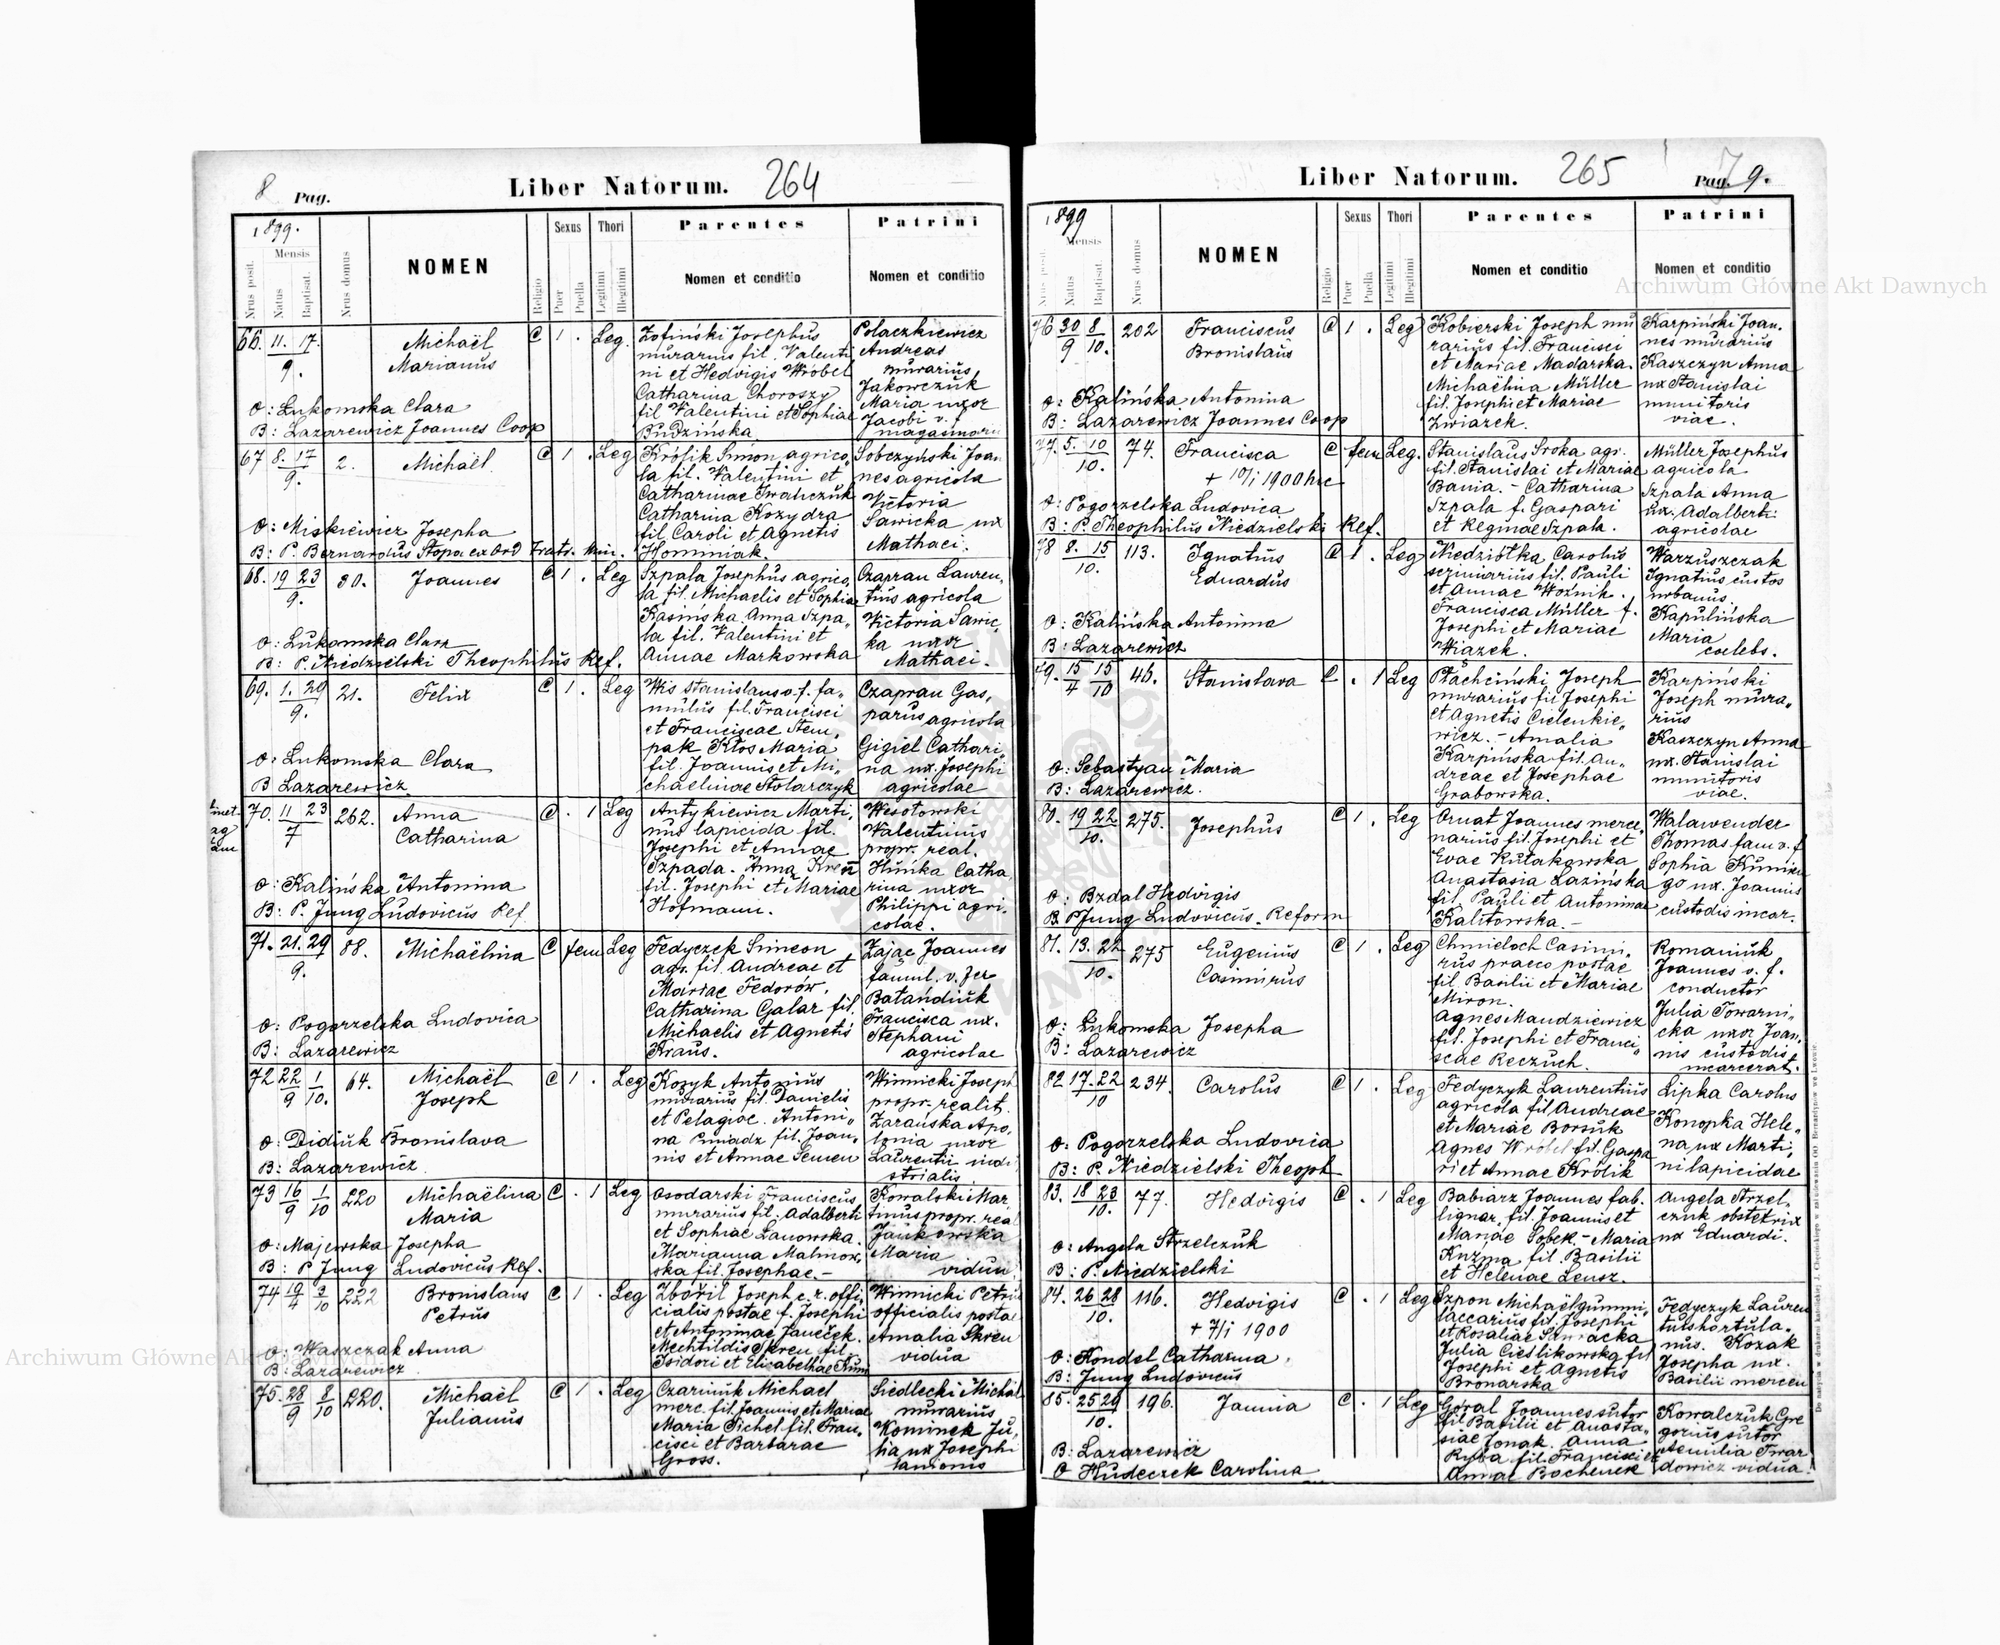 8 Pag.
Liber Natorum. 264
1899.
Nrus posit.
Mensis
Natus
Baptisat.
Nrus domus
NOMEN
Religio
Sexus
Puer
Puella
Thori
Legitimi
Illegitimi
Parentes
Nomen et conditio
Patrini
Nomen et conditio
66. 11. 17. 9. Michaël Marianus C 1 . Leg.
O: Lukomska Clara
B: Lazarewicz Joannes Coop
Josephus
murarius fil. Valenti
ni et Hedvigis Wróbel
Catharina Choroszy
fil Valentini et Sophiae
Budzińska
Polaczkiewicz
Andreas
murarius
Jakowczuk
Maria uxor
Jacobi v.
67 8. 17 9. 2. Michaël. C 1 . Leg
O: Miskiewicz Josepha
B: P. Bernardus Stopa ex Ord Fratr. Min.
Królik Simon agrico
la fil. Valentini et
Catharinae Iwańczuk
Catharina Kozydra
fil Caroli et Agnetis
Homniak.
Sobczyński Joan
nes agricola
Victoria
Sawicka ux
Mathaei.
68. 19 23 9. 80. Joannes C 1 . Leg
O: Lukomska Clara
B: P. Niedzielski Theophilus Ref.
Szpala Josephus agrico,
la fil. Michaelis et Sophiae
Kasińska Anna Szpa,,
la fil. Valentini et
Annae Markowska
Czapran Lauren,
tius agricola
Victoria Sawic,
ka uxor
Mathaei.
69. 1. 29 9. 21. Felix C 1 . Leg
O: Lukomska Clara
B Lazarewicz
Wis Stanislaus v. f. fa,,
mulus fil. Francisci
et Franciscae Stem,
pak Kłos Maria
fil. Joannis et Mi,,
chaelinae Stolarczyk
Czapran Gas,
parus agricola
Gigiel Cathari
na ux. Josephi
agricolae
70. 11 23 7 262. Anna Catharina C . 1 Leg
O: Kalińska Antonina
B: P. Jung Ludovicus Ref.
Antykiewicz Marti,
nus lapicida fil.
Josephi et Annae
Szpada. Anna
fil. Josephi et Mariae
Hofmann.
Wesołowski
Valentinus
propr. real.
Huńka Catha
rina uxor
Philippi agri,
colae.
71. 21. 29 9. 88. Michaëlina C fem Leg
O: Pogorzelska Ludovica
B: Lazarewicz
Fedyczek Simeon
agr. fil. Andreae et
Mariae Fedorów.
Catharina Galar fil.
Michaelis et Agnetis
Kraus.
Zając Joannes
famul. v. fer
Batańdiuk
Francisca ux.
Stephani
agricolae
72 22 9 1 10. 64. Michaël Joseph C 1 . Leg
O: Didiuk Bronislava
B: Lazarewicz
Kozyk Antonius
murarius fil. Danielis
et Pelagiae. Antoni,,
na fil. Joan,,
nis et Annae Semen
Winnicki Joseph
propr. realit.
Zarańska Apo,
lonia uxor
Laurentii indu
strialis
73 16 9 1 10 220 Michaëlina Maria C . 1 Leg
O: Majewska Josepha
B: P Jung Ludovicus Ref.
Osodarski Franciscus
murarius fil. Adalberti
et Sophiae Lanowska.
Marianna Malnow,
ska fil. Josephae. –
Kowalski Mar,
tinus propr. real
Jankowska
Maria
vidua.
74 19 4 3 10 222 Bronislaus Petrus C 1 . Leg
O: Waszczak Anna
B: Lazarewicz
Zbořil Joseph c. r. offi
cialis postae f. Josephi
et Antoninae Janeček.
Mechtildis Skreu fil.
Isidori et Elizabethae
Winnicki Petrus
officialis postae
Amalia Skreu
vidua
75. 28 9 8 10 220. Michael Julianus C 1 . Leg
Czarniuk Michael
merc. fil. Joannis et Mariae
Maria Pichel fil. Fran,
cisci et Barbarae
Gross.
Siedlecki Michal
murarius
Kominek Ju,
lia ux Josephi
lanionis
Liber Natorum. 265
Pag. 9.
1899
Mensis
Natus
Baptisat.
Nrus domus
NOMEN
Religio
Sexus
Puer
Puella
Thori
Legitimi
Illegitimi
Parentes
Nomen et conditio
Patrini
Nomen et conditio
76 30 9 8 10. 202 Franciscus Bronislaus C 1 . Leg
O: Kalińska Antonina
B: Lazarewicz Joannes Coop
Kobierski Joseph mu
rarius fil. Francisci
et Mariae Madarska.
Michaëlina Müller
fil. Josephi et Mariae
Zwiazek.
Karpiński Joan.
nes murarius
Kaszczyn Anna
ux Stanislai
munitoris
viae.
77. 5. 10 10. 74. Francisca C . fem Leg.
+ 10/1 1900 hre
O: Pogorzelska Ludovica
B: P. Theophilus Niedzielski Ref.
Stanislaus Srska agr.
fil. Stanislai et Mariae
Bania. – Catharina
Szpala f. Gaspari
et Reginae Szpala.
Müller Josephus
agricola
Szpala Anna
ux. Adalberti
agricolae
78 8. 15 10. 113. Ignatius Eduardus C 1 . Leg
O: Kalińska Antonina
B: Lazarewicz
Niedziółka Carolus
fil. Pauli
et Annae Woznik.
Francisca Müller f.
Josephi et Mariae
Wiazek.
Warzuszczak
Ignatius custos
urbanus.
Kapulińska
Maria
coelebs.
79. 15 4 15 10 46. Stanislava C . 1 Leg
O: Sebastyan Maria
B: Lazarewicz.
Płacheiński Joseph
murarius fil Josephi
et Agnetis Cielenkie,,
wicz. – Amalia
Karpińska fil. An,,
dreae et Josephae
Grabowska.
Karpiński
Joseph mura,,
rius
Kaszczyn Anna
ux. Stanislai
munitoris
viae.
80. 19 22 10. 275. Josephus C 1 . Leg
O: Bzdal Hedvigis
B. P Jung Ludovicus. Reform
Ornat Joannes merce,
narius fil. Josephi et
Evae Kułakowska
Anastasia Łazińska
fil. Pauli et Antoninae
Kalitowska. –
Walawender
Thomas fam v. f
Sophia
go ux. Joannis
custodis incar.
81. 13. 22 10. 275 Eugenius Casimirus C 1 . Leg
O: Lukomska Josepha
B: Lazarewicz
Chmieloch Casimi,
rus praeco postae
fil. Basilii et Mariae
Miron.
Agnes Maudziewicz
fil. Josephi et Franci,
scae Reczuch.
Romaniuk
Joannes v. f.
conductor
Julia Towarni,,
cka uxor Joan,
nis custodis
incarcerat.
82 17. 22 10 234 Carolus C 1 . Leg
O: Pogorzelska Ludovica
B: P. Niedzielski Theoph
Fedyczyk Laurentius
agricola fil. Andreae
et Mariae Borsuk
Agnes Wróbel fil. Gaspa
ri et Annae Królik
Lipka Carolus
Konopka Hele,,
na ux Marti,
ni lapicidae
83. 18 23 10. 77. Hedvigis C . 1 Leg
O: Angela Strzelczuk
B: P. Niedzielski
Babiarz Joannes fab.
lignar. fil. Joannis et
Mariae Sobek. – Maria
Kuzma fil Basilii
et Helenae Leusz.
Angela Strzel,
czuk obstetrix
ux Eduardi.
84. 26 28 10. 116. Hedvigis C . 1 Leg
+ 7/1 1900
O: Kondel Catharina
B: Jung Ludovicus
Szpon Michaël gummi,,
laccarius fil. Josephi
et Rosaliae
Julia Cieślikowska fil
Josephi et Agnetis
Bronarska
Fedyczyk Lauren
tius hortula,
nus. Kozak
Josepha ux.
Basilii mercen
85. 25 29 10. 196. Jannia C . 1 Leg
B: Lazarewicz
O Hudeczek Carolina
Góral Joannes sutor
fil Basilii et Anasta,
siae Jonak. Anna
Ryba fil. Francisci et
Annae Bochenek
Kowalczuk Gre
gorius sutor
Aemilia Twar
dowicz vidua.
Archiwum Główne Akt Dawnych
Archiwum Główne Akt Dawnych